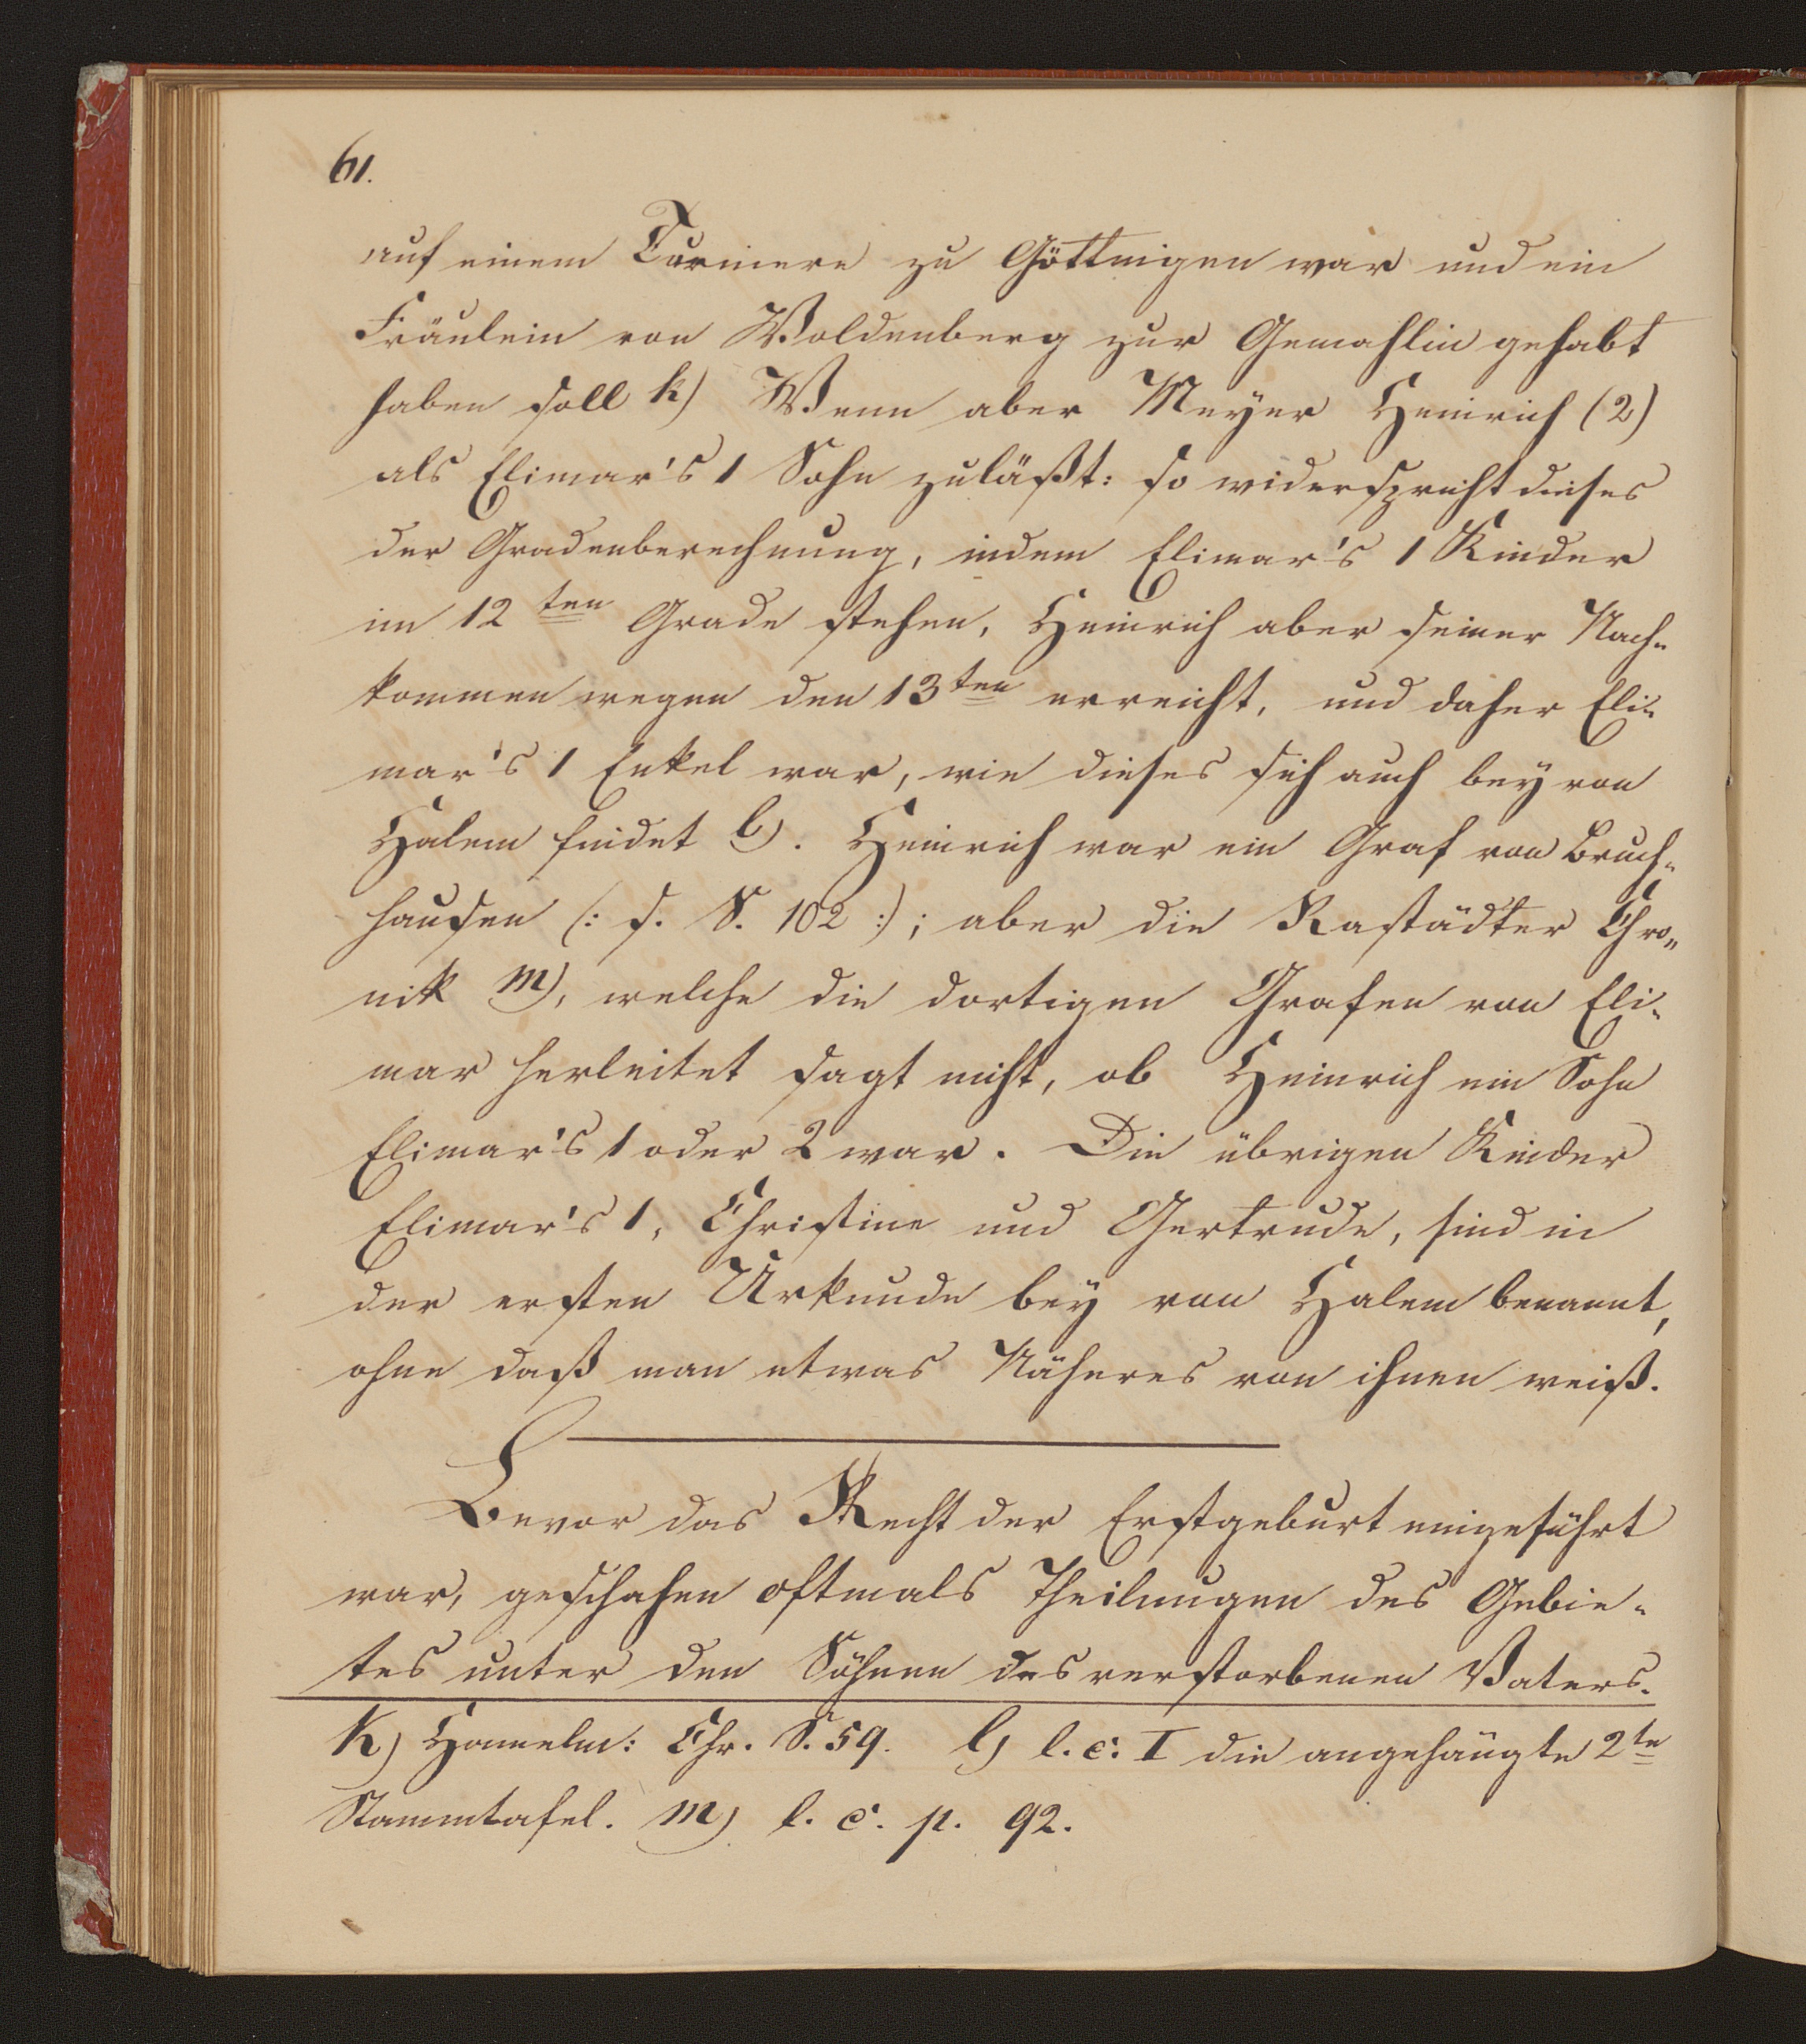 61.
auf einem Turniere zu Göttingen war und ein
Fräulein von Woldenberg zur Gemahlin gehabt
haben soll k) Wenn aber Meyer Heinrich (2)
als Elimar's 1 Sohn zuläßt: so widerspricht dieses
der Gradenberechnung, indem Elimar's 1 Kinder
im 12ten Grade stehen, Heinrich aber seiner Nach-
kommen wegen den 13ten erreicht, und daher Eli-
mar's 1 Enkel war, wie dieses sich auch bey von
Halem findet l). Heinrich war ein Graf von Bruch-
hausen (: s. S. 102 :); aber die Rastädter Chro-
nik m), welche die dortigen Grafen von Eli-
mar herleitet sagt nicht, ob Heinrich ein Sohn
Elimar's 1 oder 2 war. Die übrigen Kinder
Elimar's 1, Christine und Gertrude, sind in
der ersten Urkunde bey von Halem benannt,
ohne daß man etwas Näheres von ihnen weiß.
Bevor das Recht der Erstgeburt eingeführt
war, geschahen oftmals Theilungen des Gebie-
tes unter den Söhnen des verstorbenen Vaters.
k) Hamelm: Chr. S. 59. l) l. c. I die angehängte 2te
Stammtafel. m) l. c. p. 92.